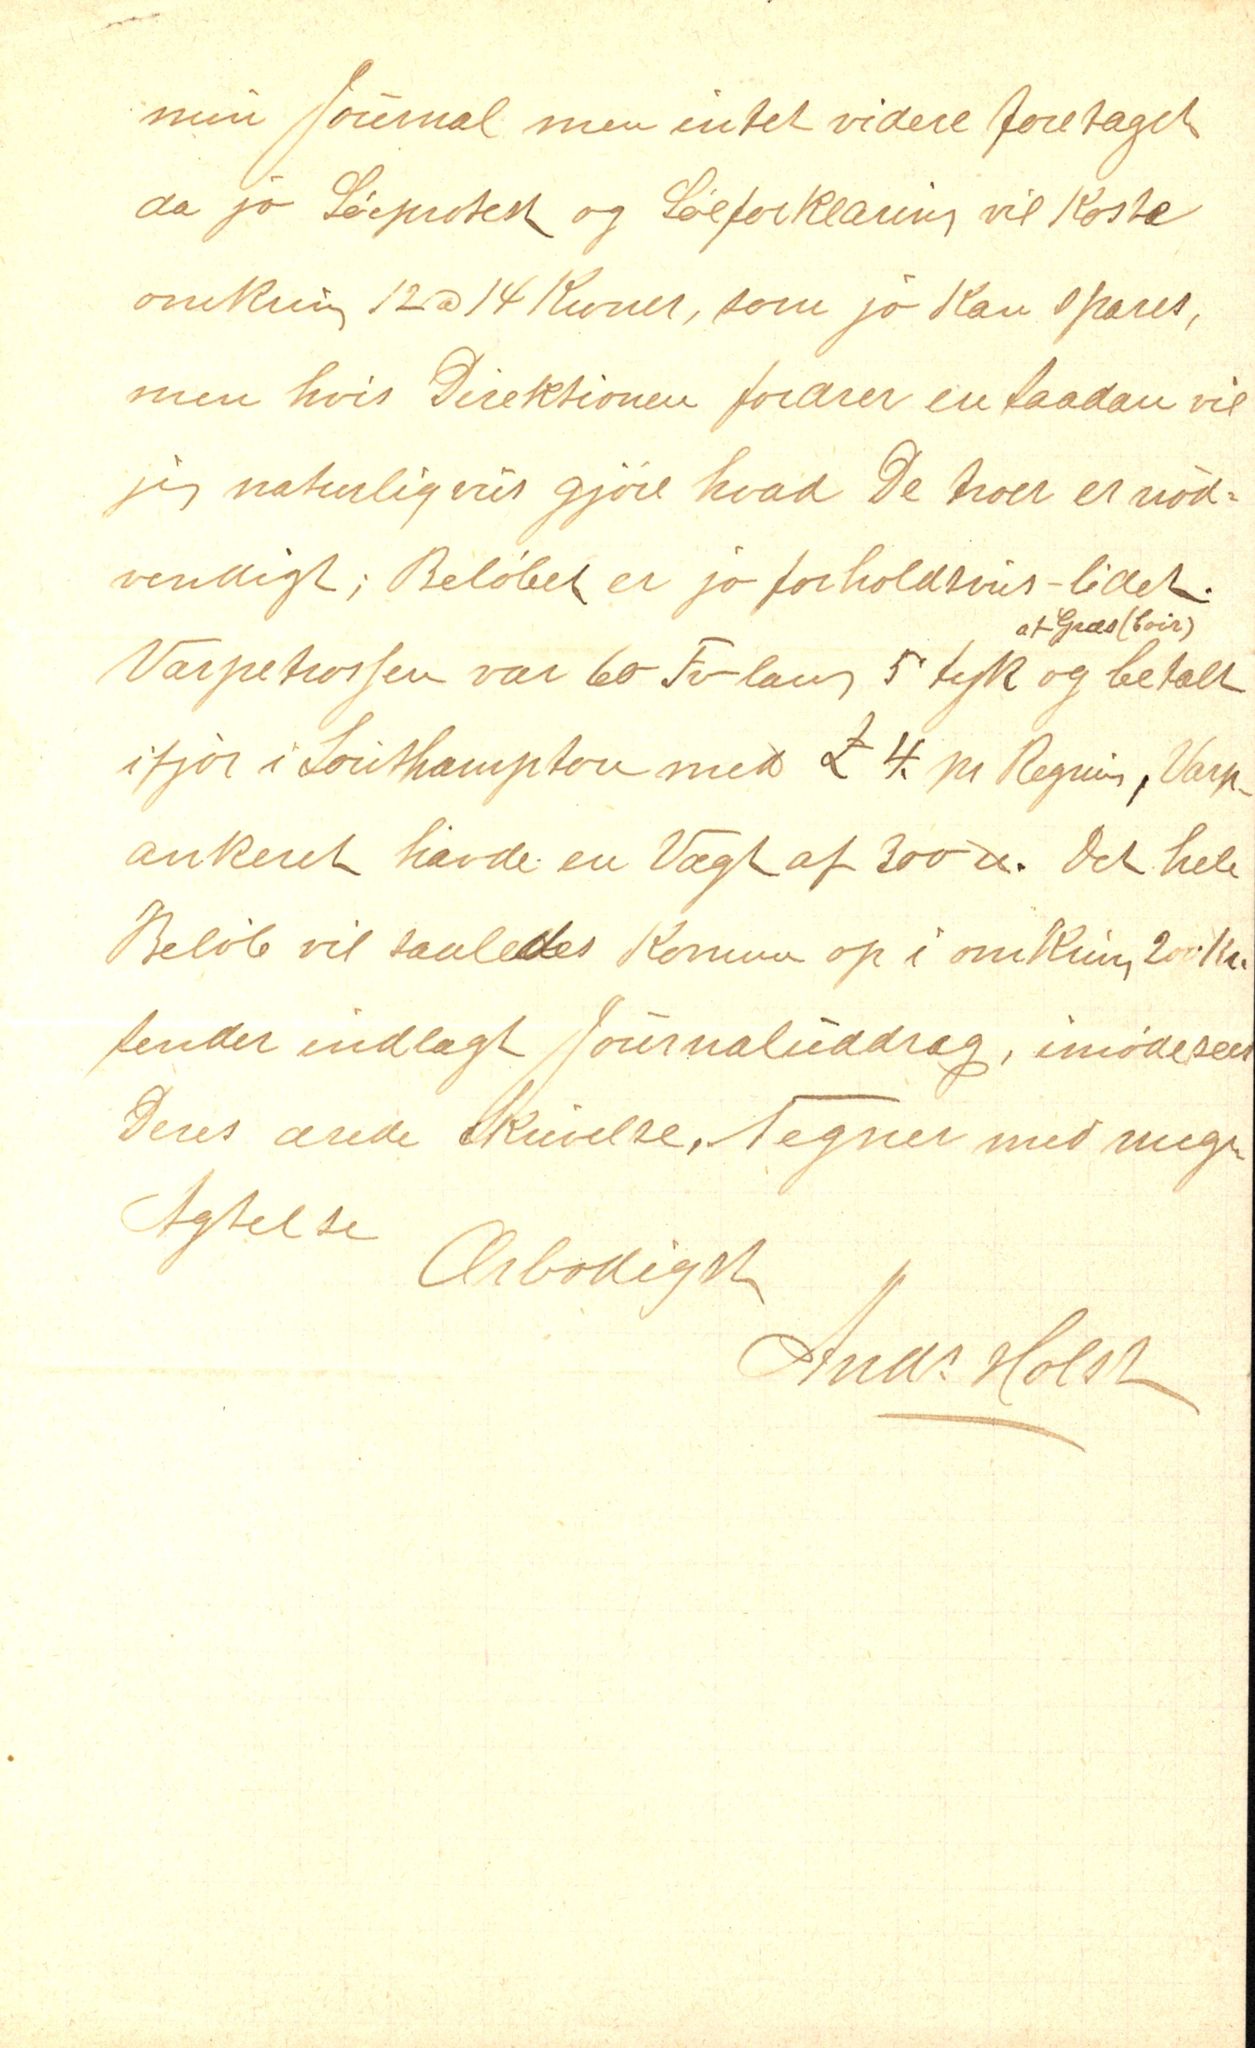 min Journal men intet videre foretaget
da jo Søeprotest og Søeforklaring vil koste
omkring 12 a 14 Kroner, som jo kan spares,
men hvis Direktionen fordrer en saadan vil
jeg naturligviis gjöre hvad De troer er nöd=
vendigt; Belöbet er jo forholdsviis lidet.
af Græs (Coir)
Varpetrossen var 60 Fv lang 5" tyk og betalt
ifjor i Southampton med £ 4. pr Regning, Varp-
ankeret havde en Vægt af 300 u. Det hele
Belöb vil saaledes komme op i omkring 200 Kr.
sender indlagt Journaluddrag, imödesees
Deres ærede Skrivelse, Tegner med megen
Agtelse
Ærbödigst
Ands Holst